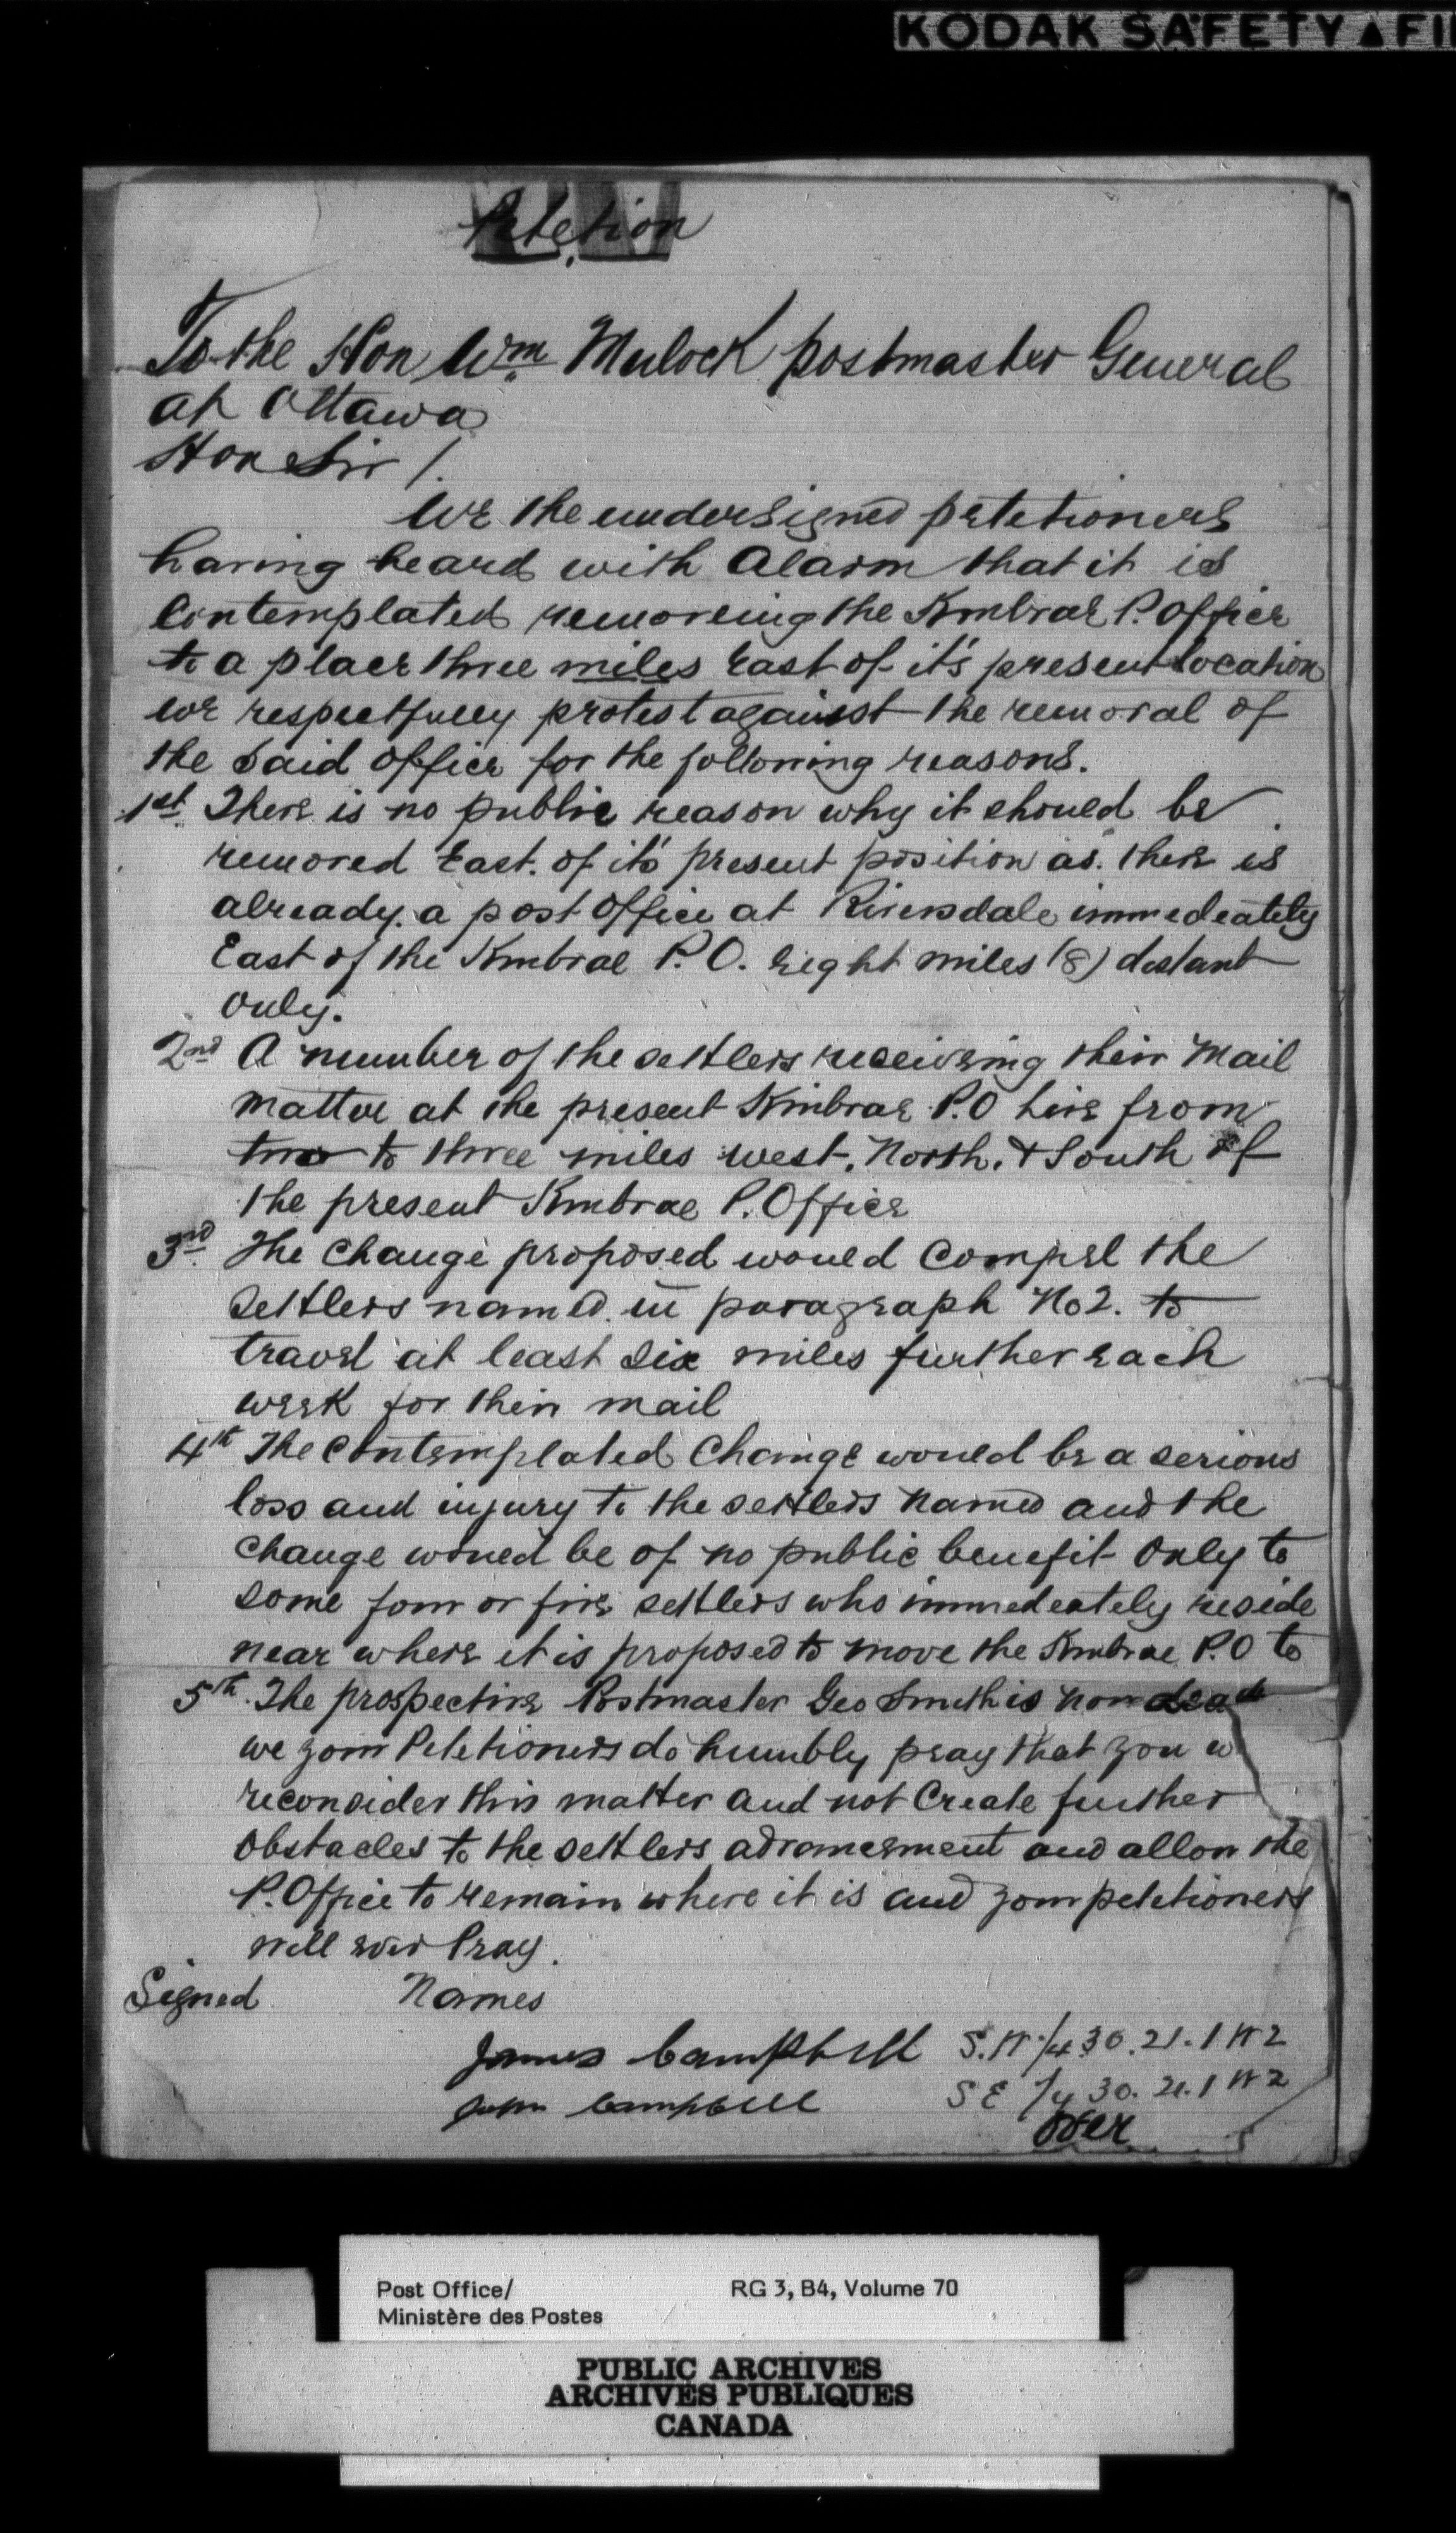 KODAK SAFETY ▲ FI
Petetion
To the Hon Wm Mulock postmaster General
at Ottawa
Hon Sir /.
We the undersigned petetioners
having heard with Alarm that it is
Contemplated removeing the Kinbrae P. Office
to a place three miles East of it's present location
we respectfully protest against the removal of
the said office for the following reasons.
1st. There is no public reason why it should be
removed East. of it's present position as. there is
already. a post office at Riversdale immedeately
East of the Kinbrae P. O. Eight miles (8) distant
only.
2nd A number of the settlers receiveing their Mail
matter at the present Kinbrae P.O live from
two to three miles west. North. & South of
the present Kinbrae P. Office
3rd. The Change proposed would Compel the
Settlers named. in paragraph No 2. to
travel at least six miles further each
week for their mail
4th The Contemplated Change would be a serious
loss and injury to the settlers named and the
Change would be of no public benefit only to
some four or five settlers who immedeately reside
near where it is proposed to move the Kinbrae P.O to
5th. The prospective Postmaster Geo Smith is now dead
we your Petetioners do humbly pray that you w
reconsider this matter and not Create further
obstacles to the settlers advancement and allow the
P. Office to remain where it is and your petetioners
will ever Pray.
Signed Names
James Campbell S.W. 1/4 30. 21. 1 W 2
John Campbell S E 1/4 30. 21. 1 W 2
Over
Post Office/ RG 3, B4, Volume 70
Ministère des Postes
PUBLIC ARCHIVES
ARCHIVES PUBLIQUES
CANADA